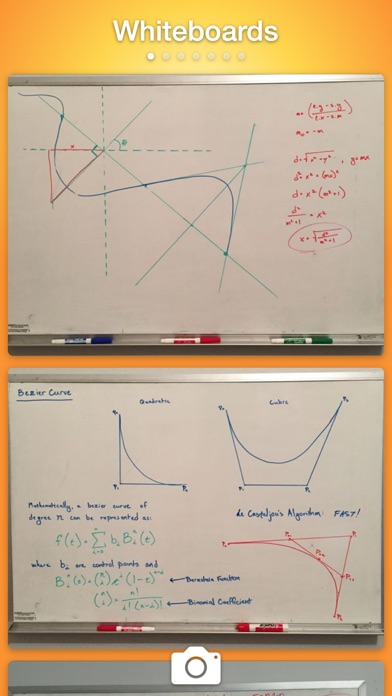 Whiteboards
x
θ
m = (2.y - 1.y / 2.x - 1.x)
d = √x² + y² , y = mx
d² = x² + (mx)²
d = x² (m² + 1)
d² / m² + 1 = x²
x = √d² / m² + 1
Bezier Curve
Quadratic
Cubic
P₀
P₁
P₂
P₀
P₁
P₂
P₃
Mathematically, a bezier curve of
degree n can be represented as:
f(t) = Σ bᵢ Bᵢⁿ(t)
i=0
where bᵢ are control points and
Bᵢⁿ(t) = (n i) tⁱ (1-t)ⁿ⁻ⁱ ← Bernstein Function
(n i) = n! / i!(n-i)! ← Binomial Coefficient
de Casteljau's Algorithm: FAST!
P₀
P₁